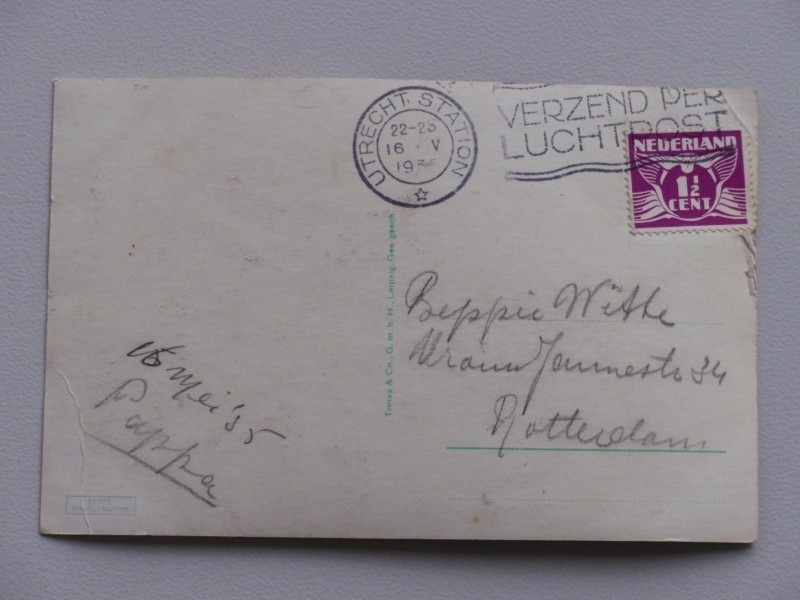 UTRECHT. STATION
22-23
16 V
VERZEND PER
LUCHTPOST
NEDERLAND
1½
CENT
Trinks & Co., G. m. b. H., Leipzig. Ges. gesch.
Beppie Witte
34
Rotterdam
16 Mei '35
Pappa
ECHTE